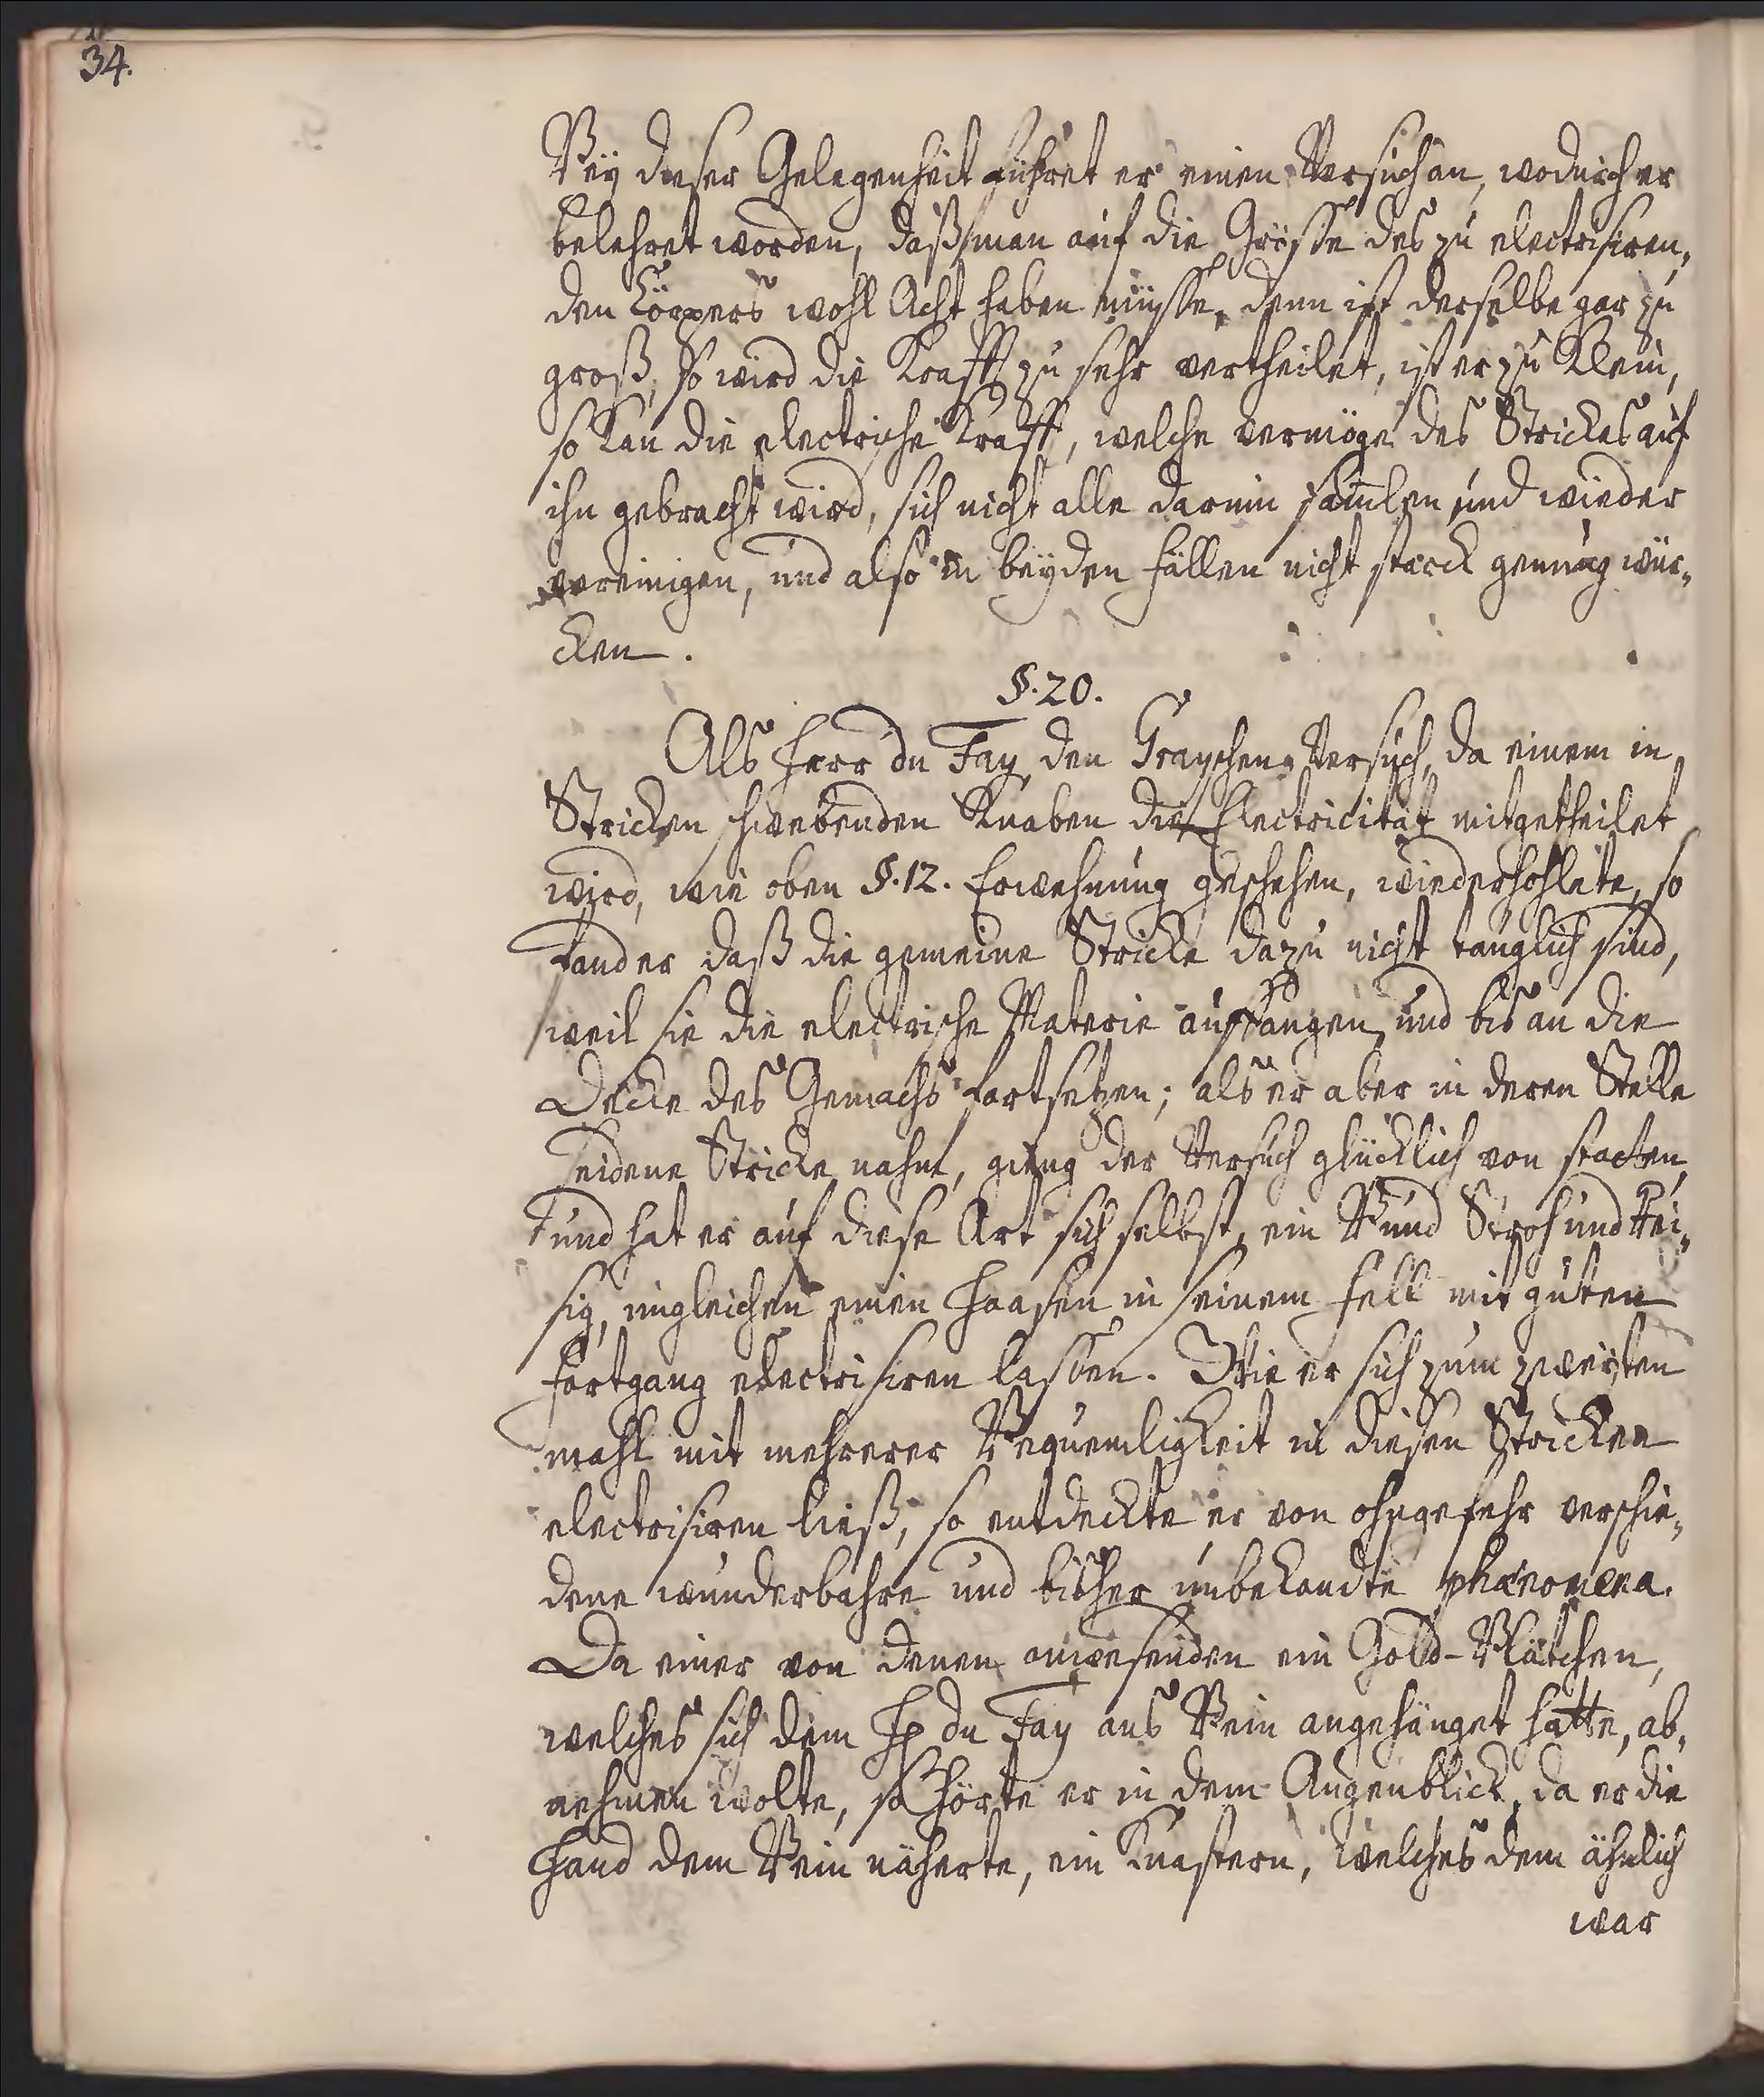 34.
Bey dieser Gelegenheit führet er einen Versuch an, wodurch er
belehret worden, daß man auf die Grösse des zu electrisiren„
den Cörpers wohl Acht haben müsse, denn ist derselbe gar zu
groß, so wird die Krafft zu sehr vertheilet, ist er zu klein,
so kan die electrische Krafft, welche vermöge des Strickes auf
ihn gebracht wird, sich nicht alle darinn sam̄len und wieder
vereinigen, und also in beyden Fällen nicht starck genung wür„
cken.
§. 20.
Als Herr du Fay den Grayschen Versuch, da einem in
Stricken schwebenden Knaben die Electricität mitgetheilet
wird, wie oben §. 12. Erwehnung geschehen, wiederhohlete, so
fand er daß die gemeine Stricke dazu nicht tauglich sind,
weil sie die electrische Materie auffangen, und bis an die
Decke des Gemachs fortsetzen; als er aber in deren Stelle
seidene Stricke nahm, gieng der Versuch glücklich von statten,
und hat er auf diese Art sich selbst, ein Bund Stroh und Rei„
sig, ingleichen einen Haasen in seinem Fell mit guten
Fortgang electrisiren lassen. Wie er sich zum zweyten
mahl mit mehrerer Bequemligkeit in diesen Stricken
electrisiren ließ, so entdeckte er von ohngefehr verschie„
dene wunderbahre und bisher unbekandte phænomena.
Da einer von denen anwesenden ein Gold-Blätchen,
welches sich dem H. du Fay ans Bein angehänget hatte, ab„
nehmen wolte, so hörte er in dem Augenblick, da er die
Hand dem Bein näherte, ein Knastern, welches dem ähnlich
war